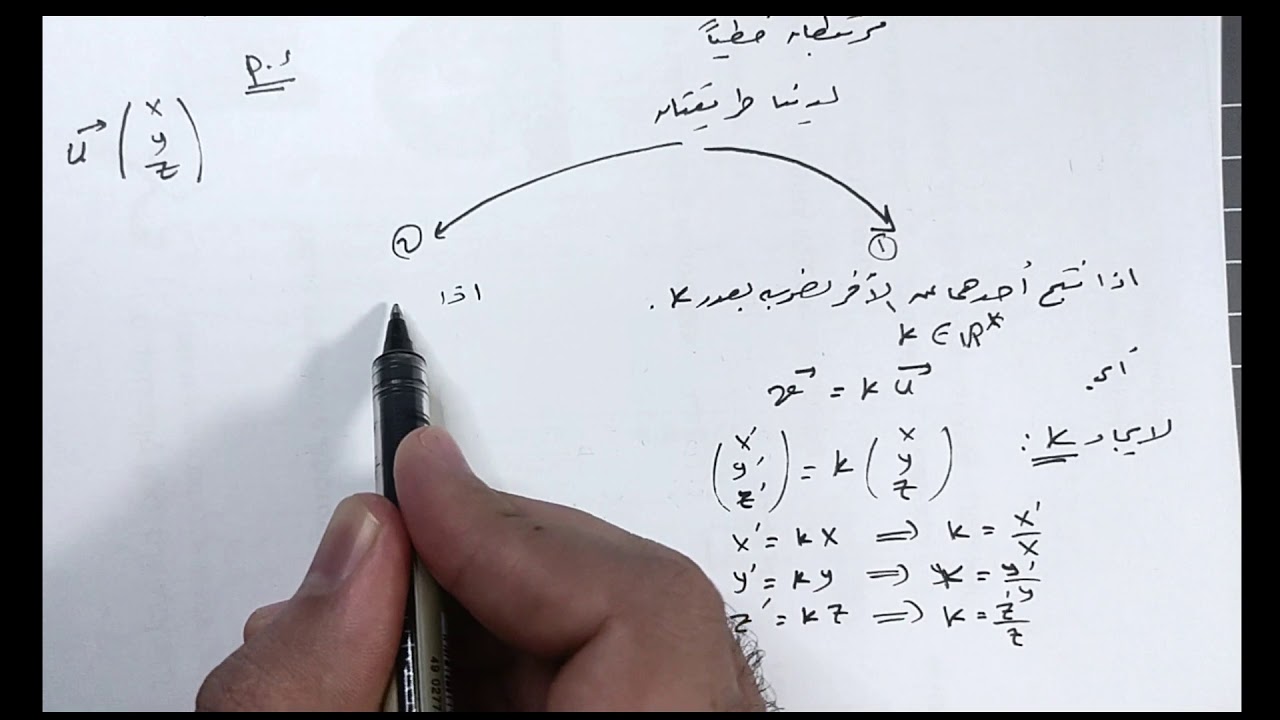 مرتبطان خطياً
P.S
لدينا طريقتان
u⃗ (x y z)
① ②
اذا نتج أحدهما عن الأخر بضربه بعدد k.
اذا
k ∈ ℝ*
أي.
v⃗ = k u⃗
لايجاد k:
(x' y' z') = k (x y z)
x' = kx ⟹ k = x'/x
y' = ky ⟹ k = y'/y
z' = kz ⟹ k = z'/z
49 0277